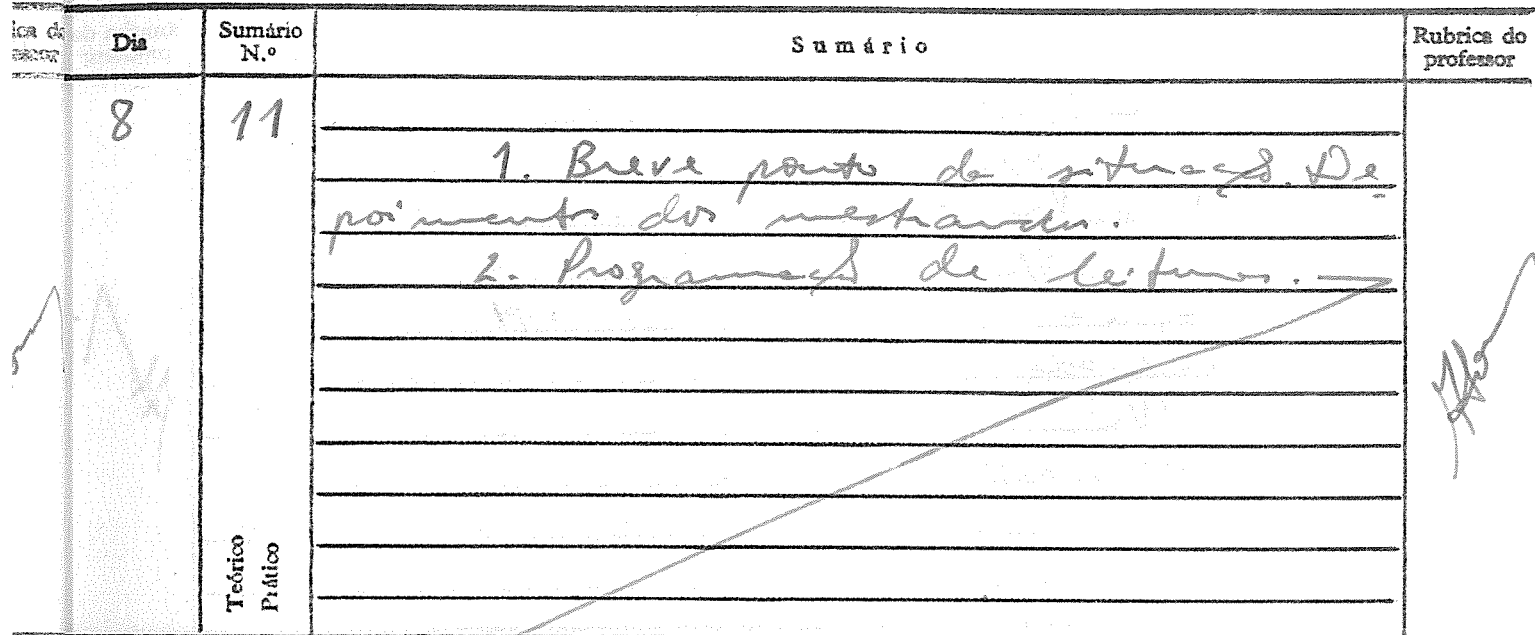 ica do
essor
Dia
Sumário
N.º
Sumário
Rubrica do
professor
8
11
1. Breve ponto da situação. De
poimentos dos mestrandos.
2. Programação de leituras. —
Teórico
Prático